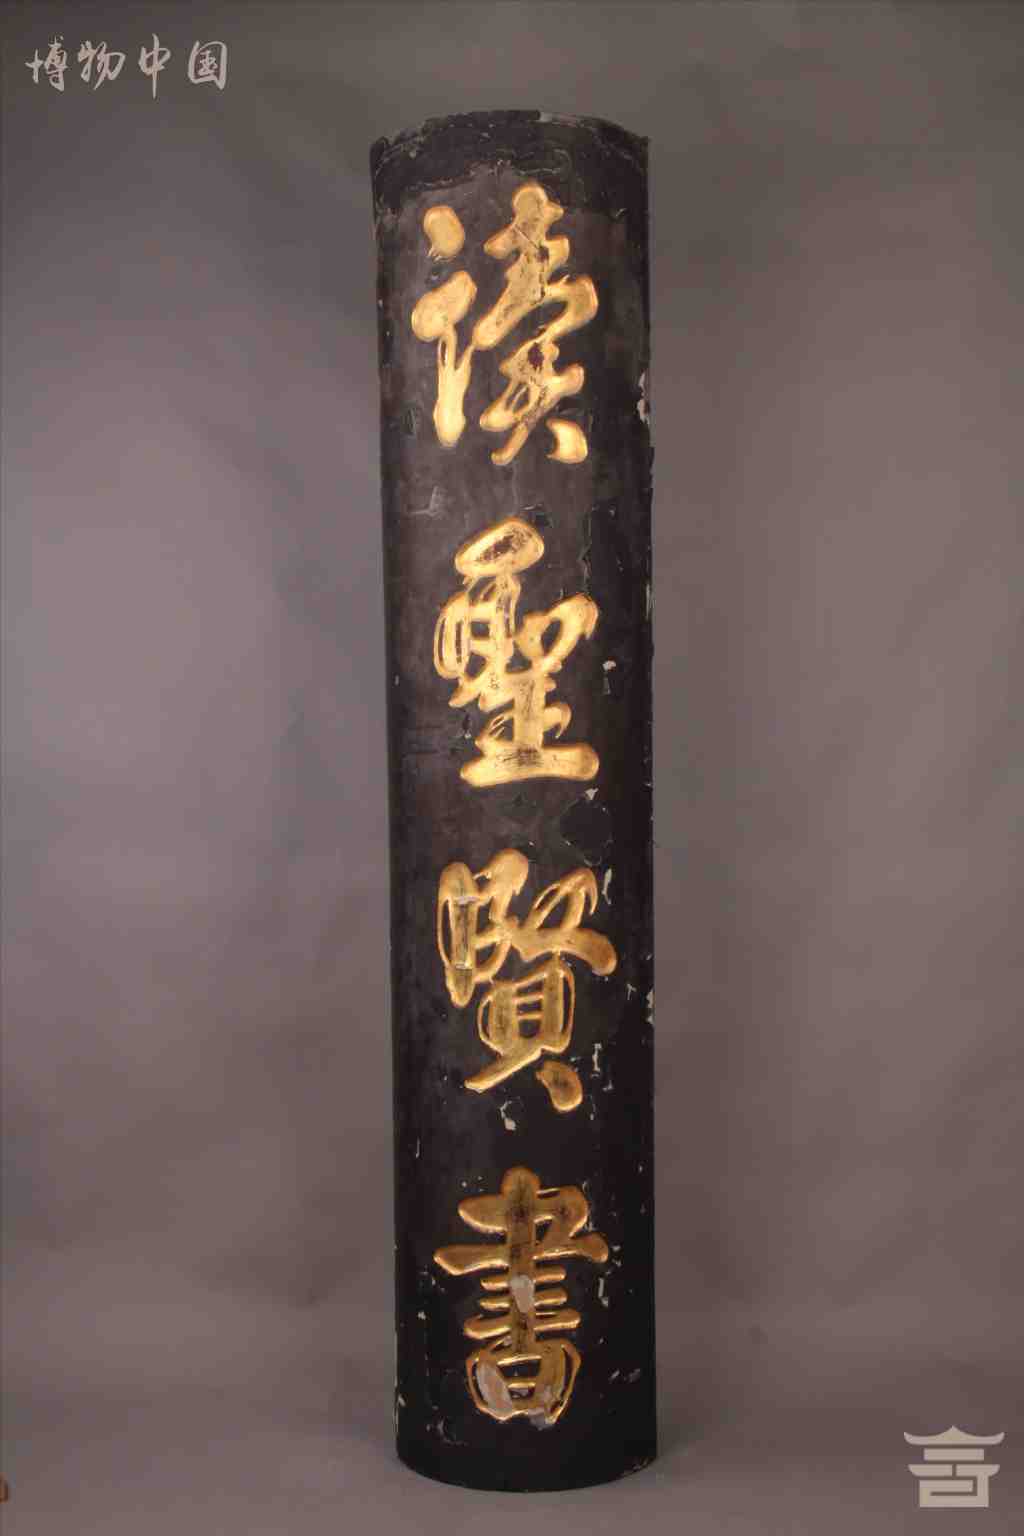 博物中国
读聖賢書